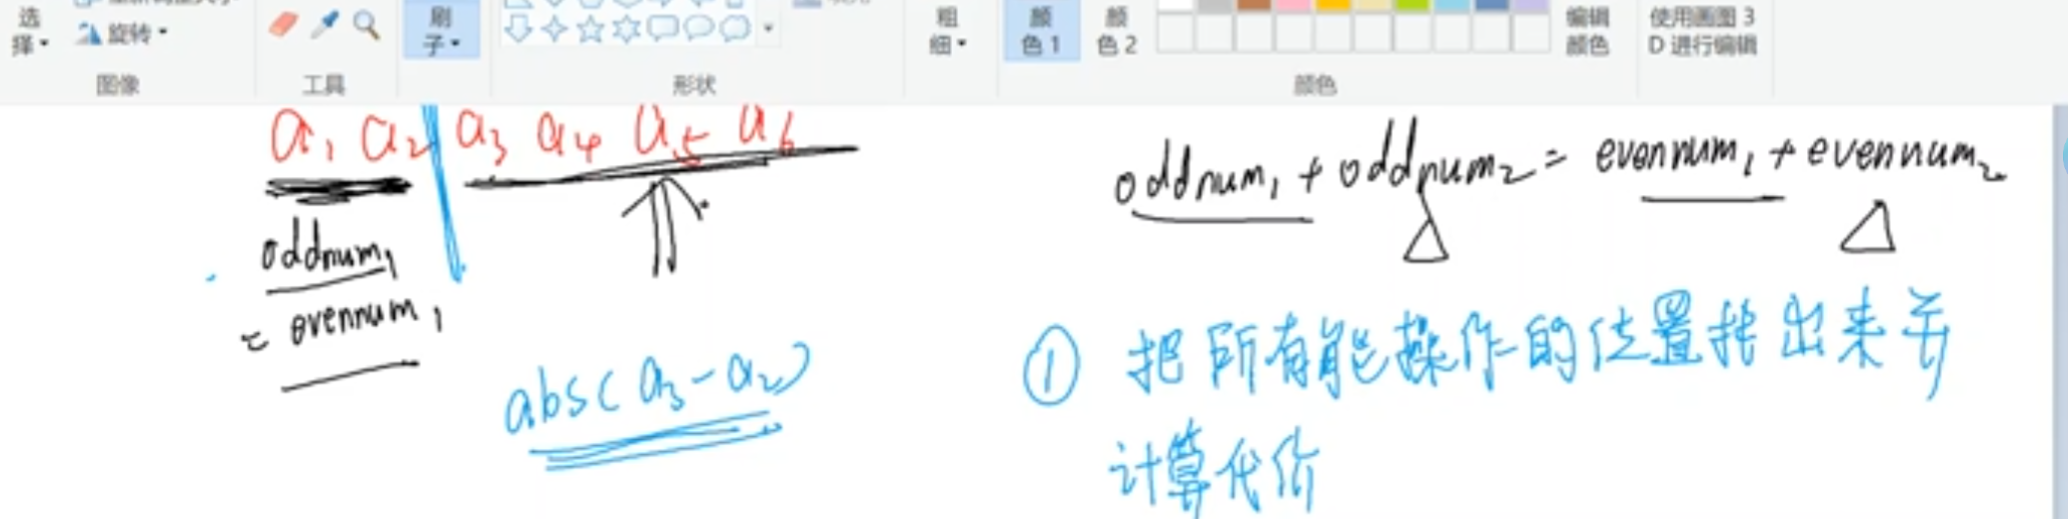 选择
旋转
图像
工具
刷子
形状
粗细
颜色 1
颜色 2
编辑颜色
使用画图 3
D 进行编辑
颜色
a1 a2 a3 a4 a5 a6
oddnum1
= evennum1
abs(a3-a2)
oddnum1 + oddnum2 = evennum1 + evennum2
① 把所有能操作的位置找出来并
计算代价